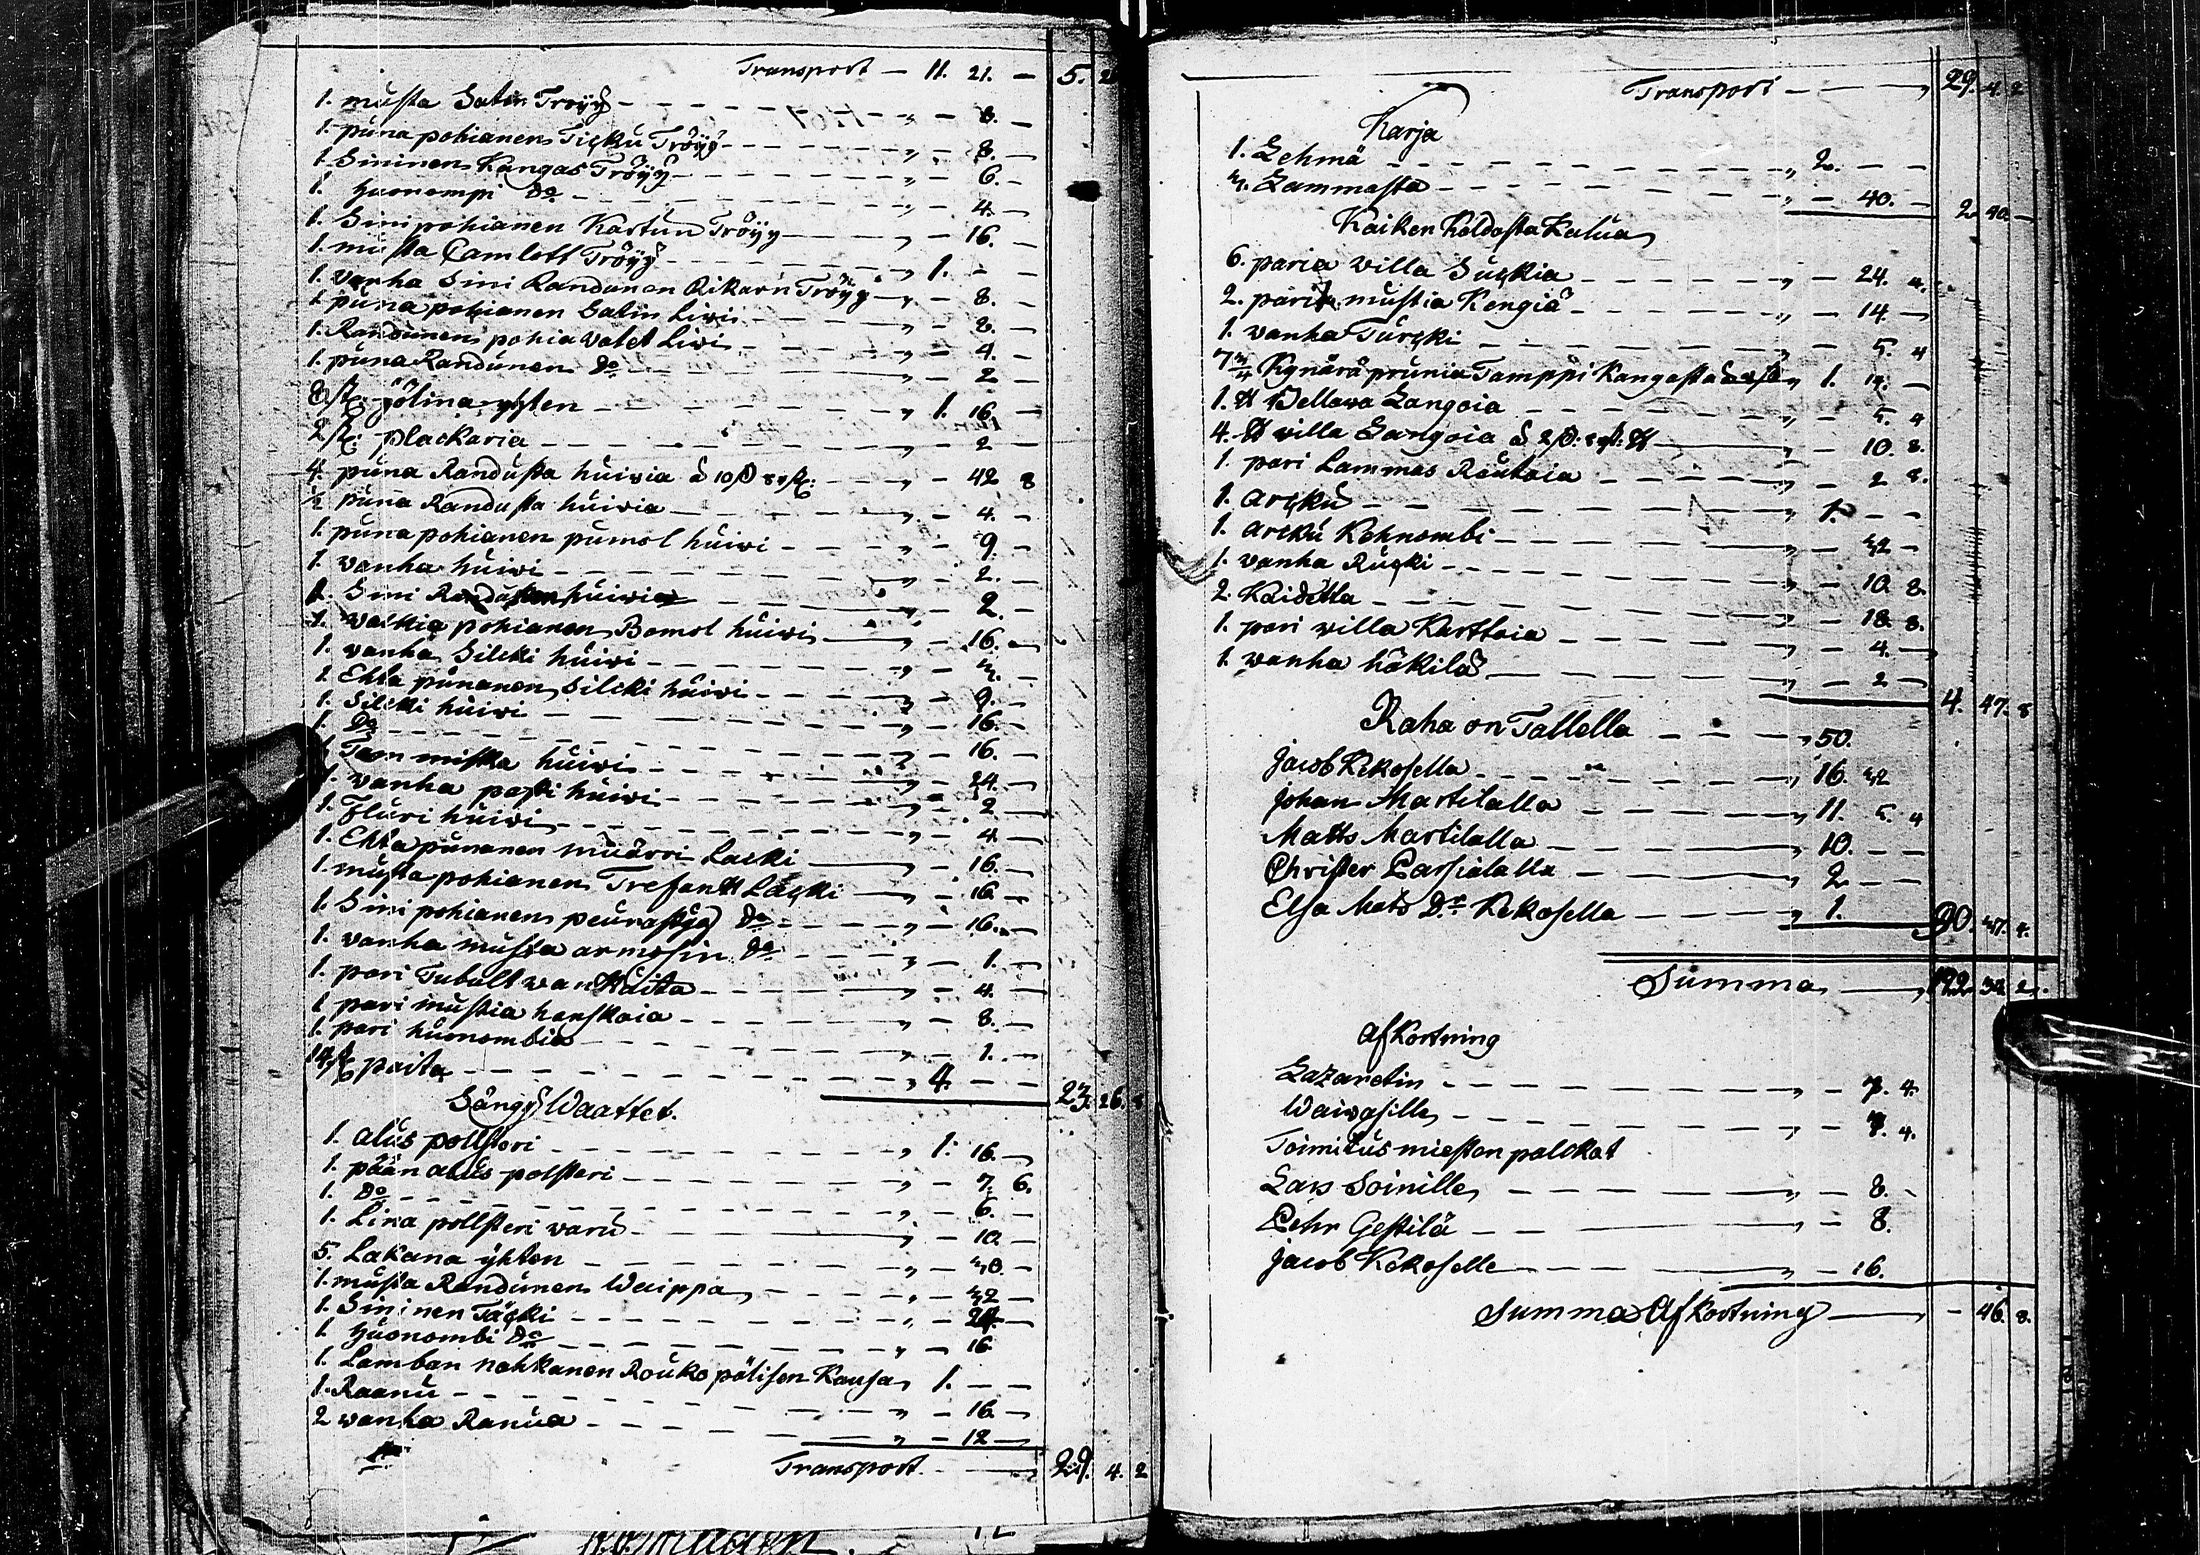 Transport — 11. 21. — 5.
1. musta Satin Tröyy — 8. —
1. puna pohianen Ticku Tröyy — 8. —
1. Sininen Kangas Tröyy — 6. —
1. huonompi do — 4. —
1. Sinipohianen Kartun Tröyy — 16. —
1. musta Camlott Tröyy — 1. — —
1. vanha Sini Randunen Tröyy — 8. —
1. puna pohianen Satin Liwi — 8. —
1. Randunen pohia Liwi — 4. —
1. puna Randunen do — 2 —
8 st: yhten — 1. 16. —
2 st: plackaria — 2
4. puna Randusta huiwia á 10 8 — 42 8
1/2 puna Randusta huiwia — 4. —
1. puna pohianen pumol huiwi — 9. —
1. vanha huiwi — 2. —
1. Sini huiwi — 2. —
1. Walkia pohianen Bomol huiwi — 16. —
1. vanha Silcki huiwi — 3. —
1 Ehta punanen Silcki huiwi — 9. —
1. Silcki huiwi — 16. —
1. Do — 16. —
huiwi — 24. —
1. vanha huiwi — 2. —
1. Fluri huiwi — 4. —
1. Ehta punanen Lacki — 16. —
1. musta pohianen Lacki — 16. —
1. Sini pohianen do — 16. —
1. vanha musta armosin do — 1. —
1. pari — 4. —
1 pari mustia hanskoia — 8. —
1. pari huonombia — 1. —
14 st paita — 4. — —
23. 26. 8
Sängy Waattet.
1. alus pollsteri — 1. 16. —
1. pään alus polsteri — 7. 6.
1. do — 6. —
1. Lina pollsteri waru — 10. —
5. Lakana yhten — 30. —
1. musta Randunen Waippa — 32 —
1. Sininen Täcki — 24 —
1 huonombi do — 16.
1. Lamban nahkanen Rouko pälisen Kansa 1. — —
1. Raanu — 16. —
2 vanha Ranua — 12 —
Transport — 29. 4. 2
Transport — 29. 4. 2
Karja
1. Lehmä — 2. — —
3. Lammasta — 40. —
2. 40. —
Kaiken Kaldasta Kalua
6. paria willa Suckia — 24. 4.
2. paria mustia Kengiä — 14. —
1. vanha Turcki — 5. 4
7 3/4 Kynärä prunia Tamppi Kangasta — 1. 19. —
1. ℔ Pellawa Langoia — 5. 4
4. ℔ willa Langoia á 2 — 10. 8.
1. pari Lammas Rautoia — 2 8.
1. arcku — 1. — —
1. arcku Kehnombi — 32 —
1. vanha Rucki — 10. 8.
2. Kaidetta — 18. 8.
1. pari willa Karttoia — 4. —
1. wanha häkilä — 2 —
4. 47. 8
Raha on Tallella — 50.
Jacob Kekosella — 16. 32
Johan Martilalla — 11. 5. 4
Matts Martilalla — 10. — —
Christer — 2 — —
Elsa Mats Dr Kekosella — 1.
90. 37. 4.
Summa — 32 2.
Afkortning
Lazaretin — 7. 4.
Waiwasille — 7. 4.
Toimitus miesten palckat
Lars Soinille — 8.
Pehr Gestilä — 8.
Jacob Kekoselle — 16.
Summa Afkortning — 46. 8.